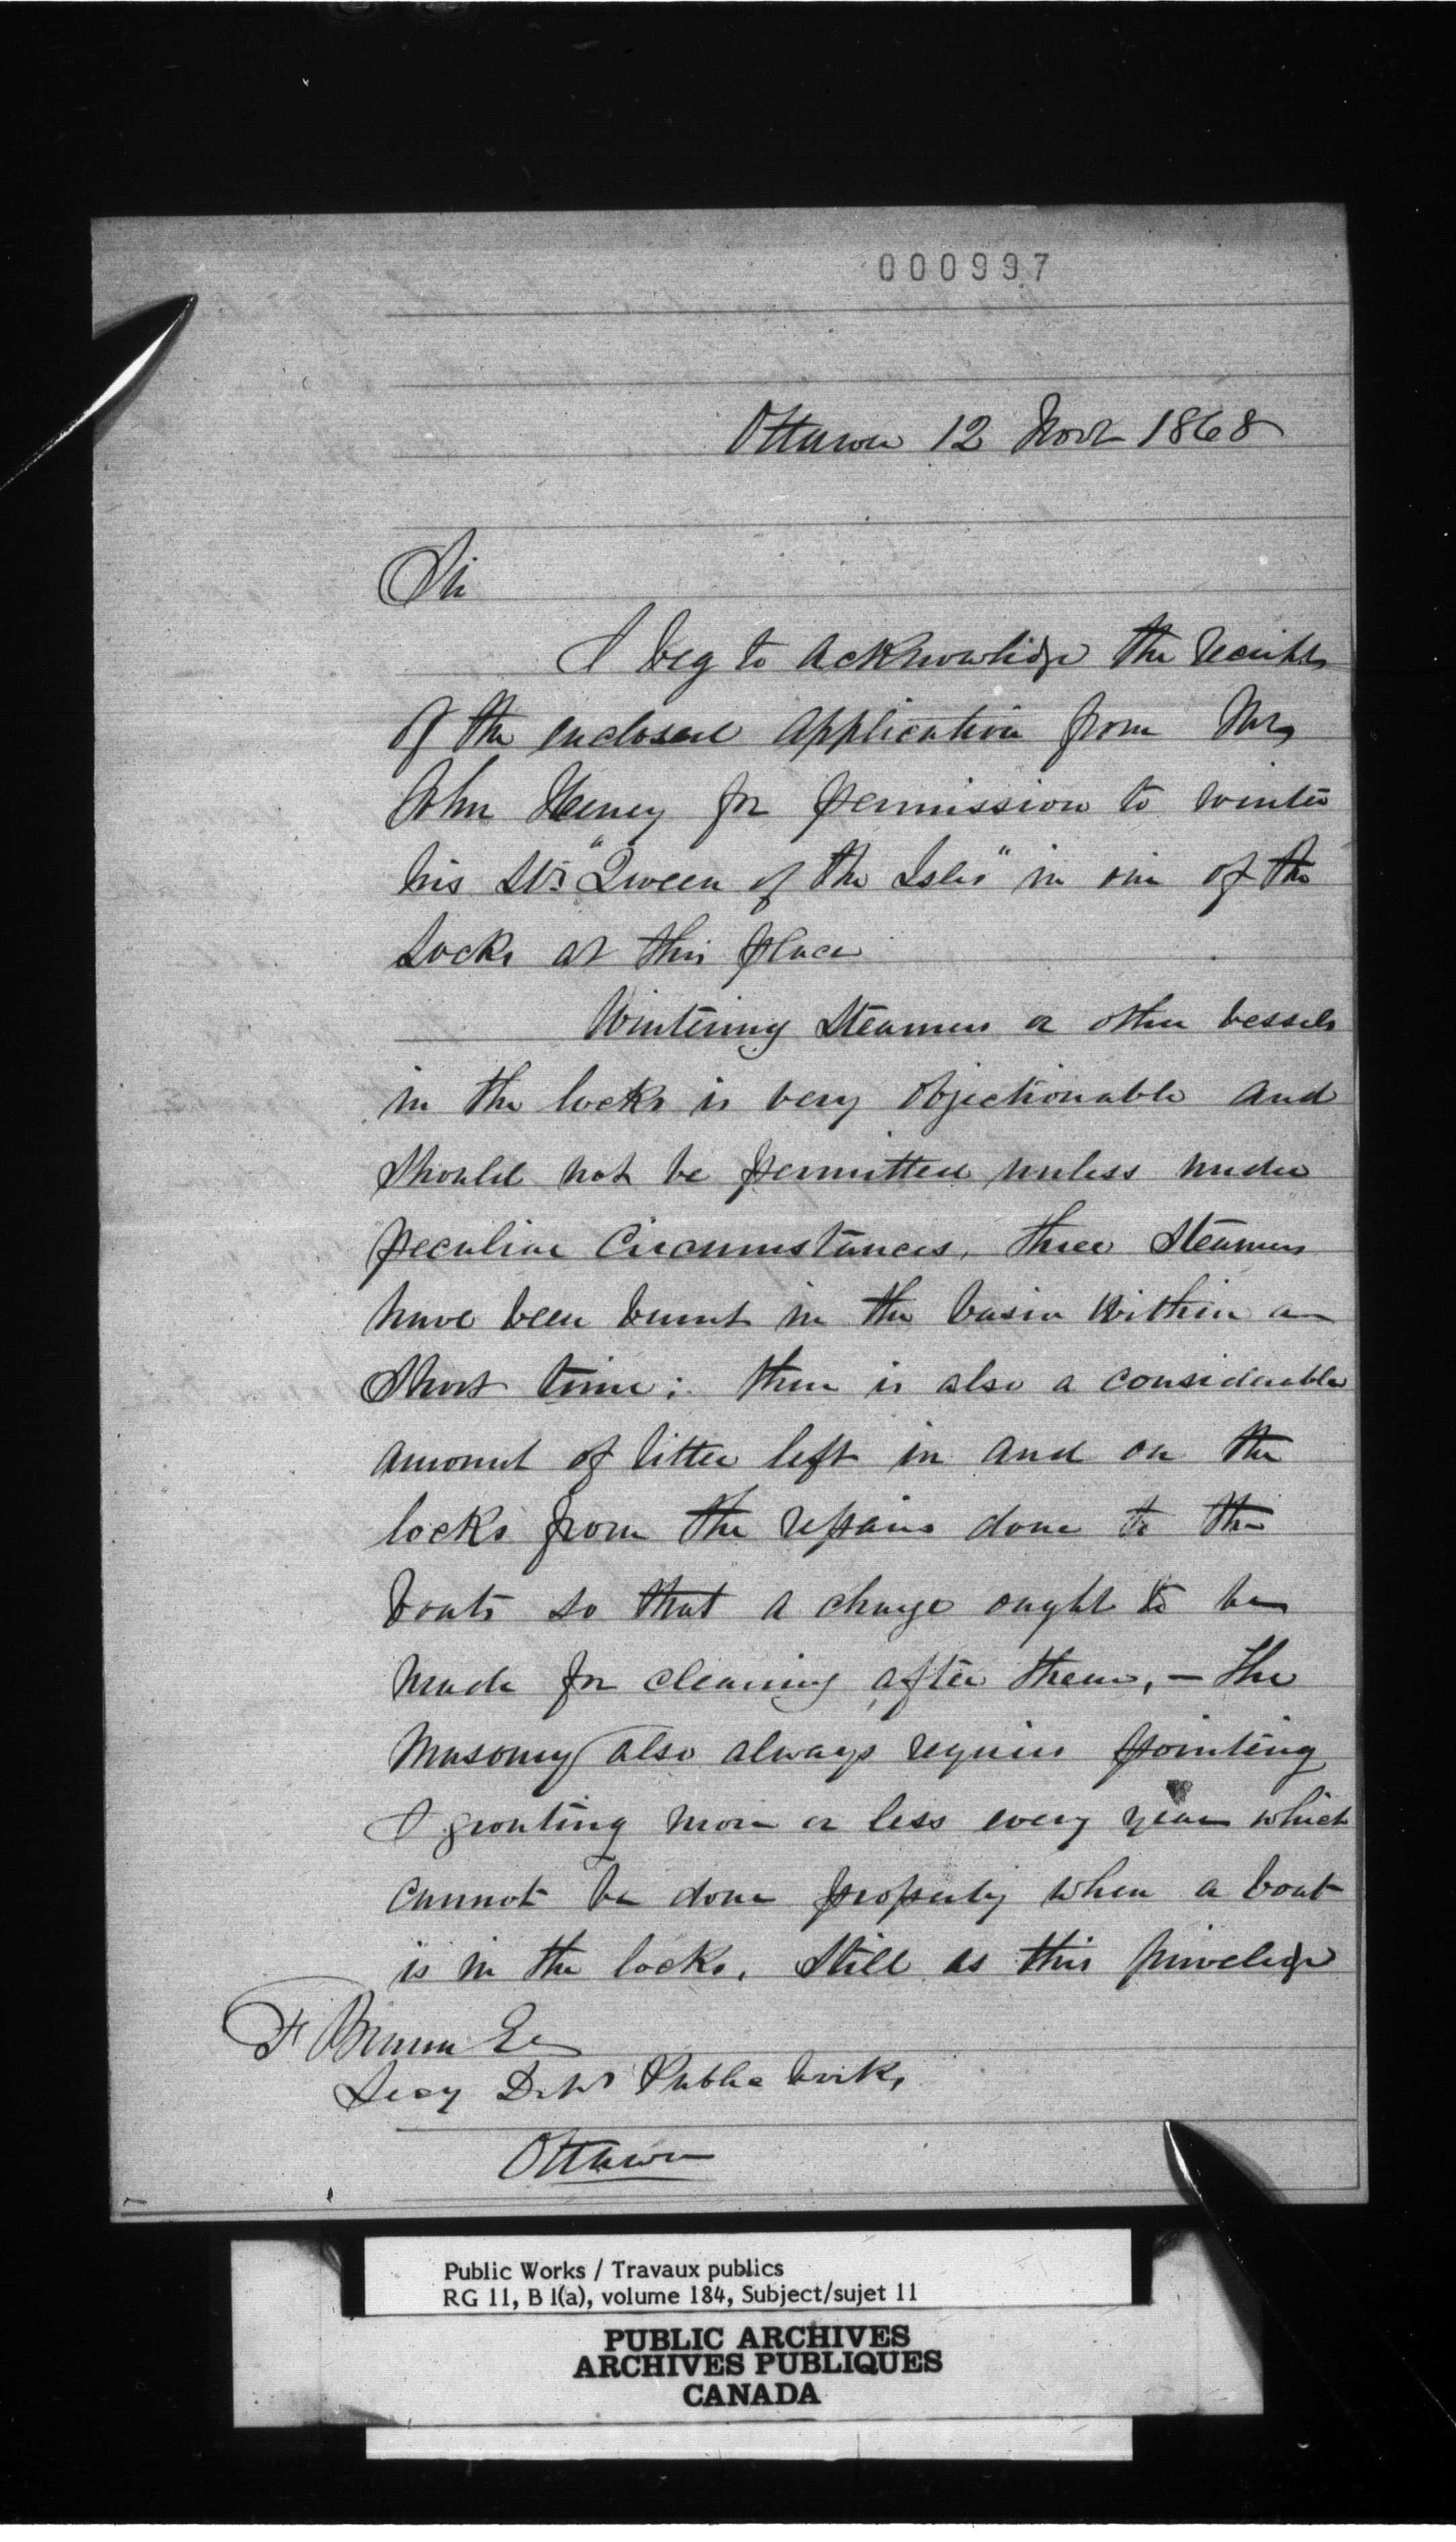 000997
Ottawa 12 Novr 1868
Sir
I beg to acknowlidge the receipt
of the enclosed application from Mr
John Heney for permission to winter
his Str "Queen of the Isles" in one of the
Locks at this place
Wintering Steamers or other vessels
in the locks is very objectionable and
should not be permitted unless under
peculiar Circumstances, three Steamers
have been burnt in the basin within a
Short time; there is also a considerable
amount of litter left in and on the
locks from the repairs done to the
boats so that a charge ought to be
made for cleaning after them, - the
Masonry also always requires pointing
& grouting more or less every year which
cannot be done properly when a boat
is in the locks. Still as this privelidge
F Braun Esq
Secy Dept Public Works
Ottawa
Public Works / Travaux publics
RG 11, B 1(a), volume 184, Subject/sujet 11
PUBLIC ARCHIVES
ARCHIVES PUBLIQUES
CANADA